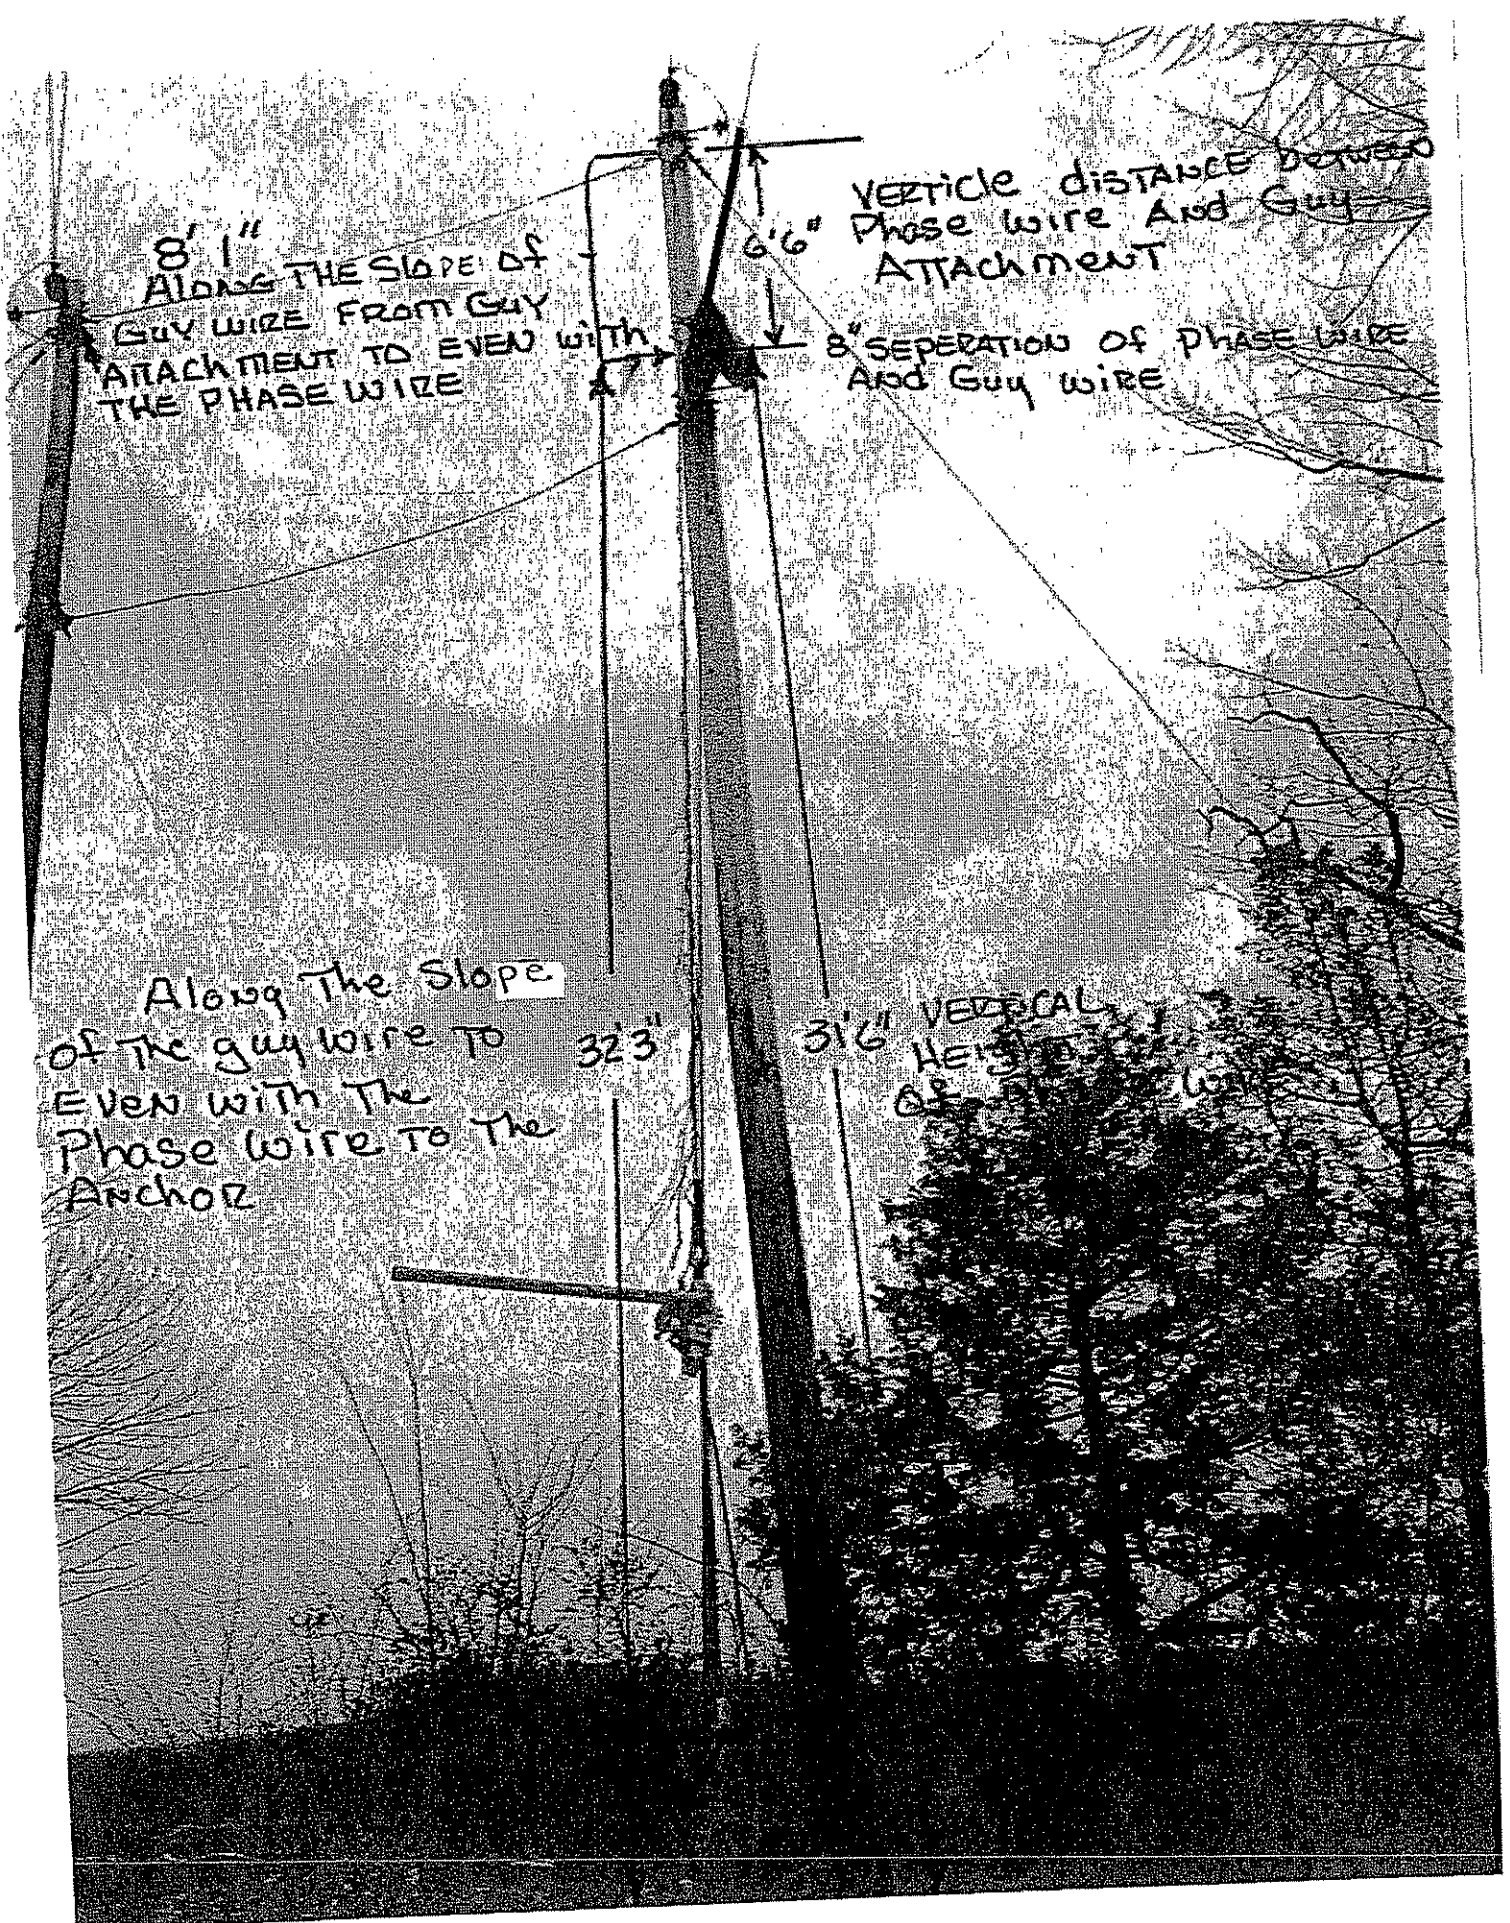 8' 1"
ALONG THE SLOPE OF
GUY WIRE FROM GUY
ATTACHMENT TO EVEN with
THE PHASE WIRE
VERTICLE diSTANCE between
Phase wire And Guy
ATTAchmenT
6'6"
8" SEPERATION Of PHASE WIRE
And Guy wiRE
Along The Slope
Of The guy wire To
Even with The
Phase wire To The
ANchoR
32'3"
31'6" VERTICAL
HEIGHT
Of